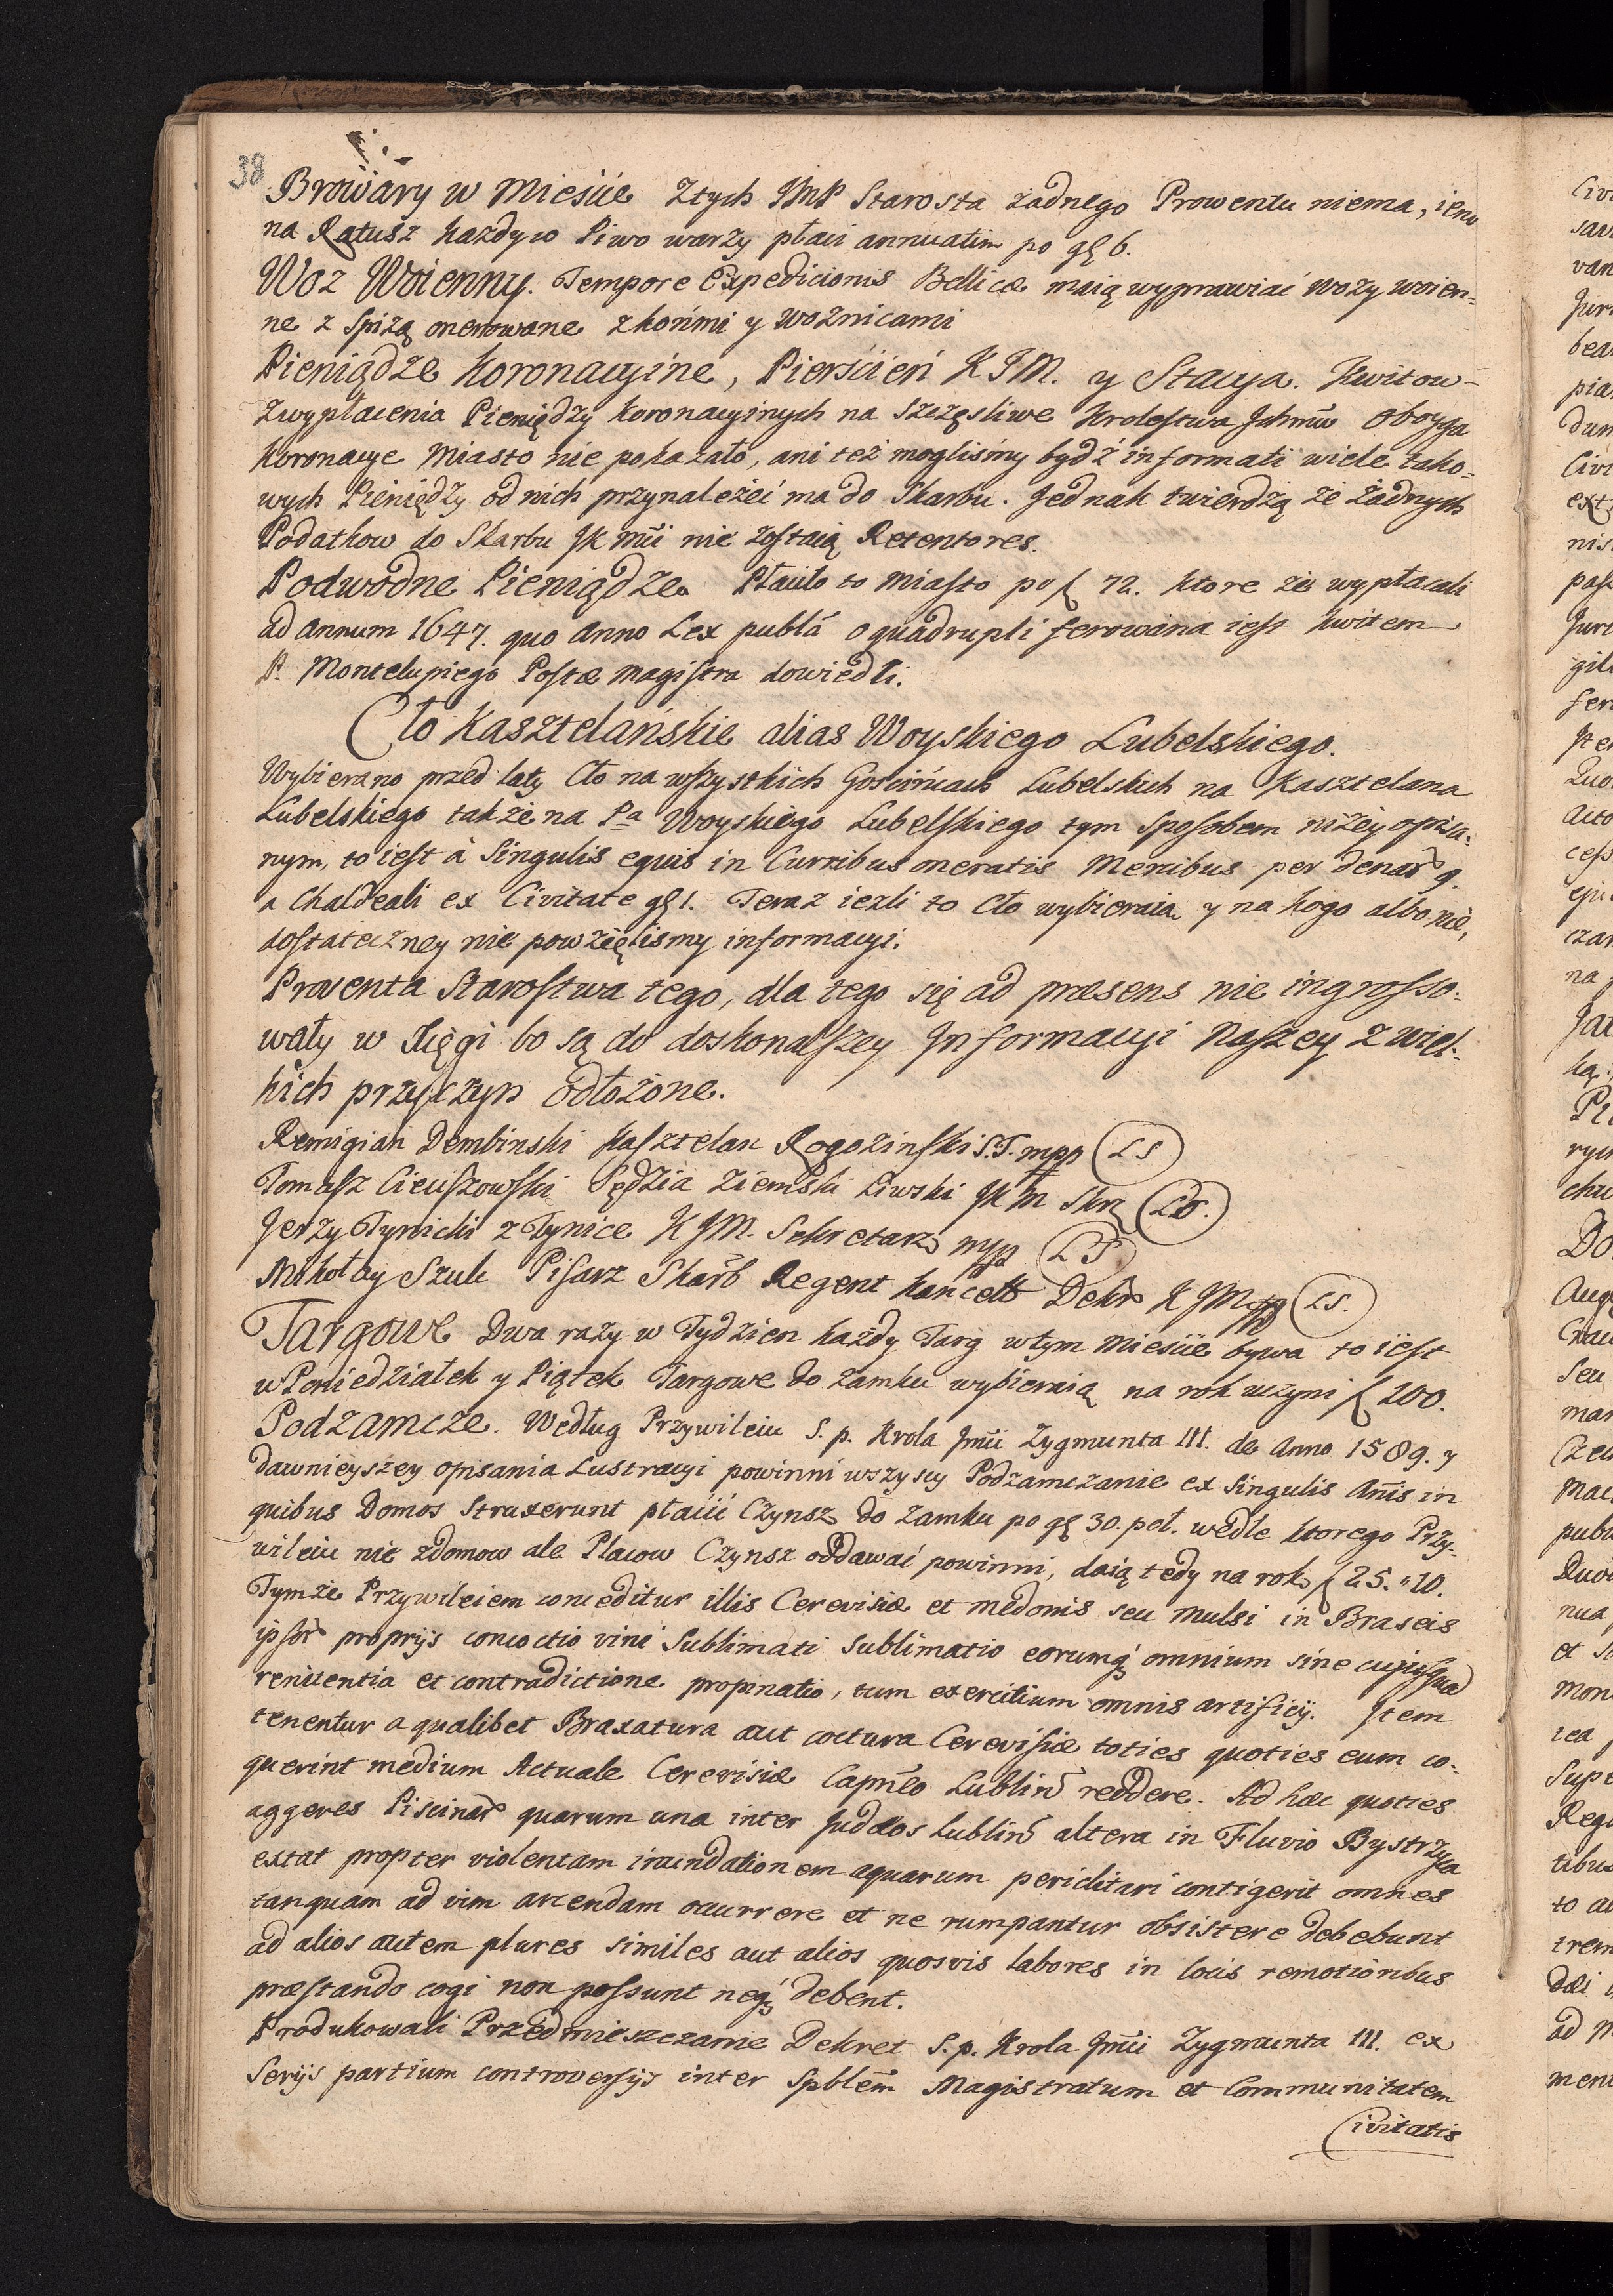 38
Browary w Mieście Ztych JMP Starosta żadnego Prowentu niema, ieno
na Ratusz każdy co Piwo warzy płaci annuatim po gr 6.
Woz Woienny. Tempore Expedicionis Bellicæ maią wyprawiać wozy woien-
ne z spiżą onerowane z końmi y woznicami
Pieniądze Koronacyine, Pierścień KJM. y Stacya. Kwitow
Zwypłacenia Pieniędzy Koronacyinych na szczęsliwe Krolestwa Jchmw oboyga
Koronacye Miasto nie pokazało, ani też moglismy bydź informati wiele tako-
wych Pieniędzy od nich przynależeć ma do Skarbu. Jednak twierdzą że żadnych
Podatkow do Skarbu JK Mci nie zostaią Retentores.
Podwodne Pieniądze. Płaciło to Miasto po f 72. ktore że wypłacali
ad Annum 1647. quo Anno Lex publa o quadrupli ferowana iest kwitem
P. Montelupiego Postæ Magistra dowiedli.
Cło Kasztelańskie alias Woyskiego Lubelskiego.
Wybierano przed laty Cło na wszystkich Gościńcach Lubelskich na Kasztelana
Lubelskiego także na Pa Woyskiego Lubelskiego tym sposobem niżey opisa-
nym, to iest à singulis equis in Curribus oneratis Mercibus per denar 9.
a Chaldeali ex Civitate gr 1. Teraz iezli to Cło wybieraia y na kogo albo nie,
dostateczney nie powzięlismy informacyi.
Proventa Starostwa tego, dla tego się ad præsens nie ingrosso-
wały w Xięgi bo są do doskonalszey Informacyi Naszey z wiel-
kich przyczyn odłożone.
Remigian Dembinski Kasztelan Rogozinski S.J. mpp LS
Tomasz Cieciszowski Sędzia Ziemski Liwski JKM Skr LS.
Jerzy Tynicki z Tynice KJM. Sekretarz mpp LS
Mikołay Szulc Pisarz Skarb Regent Kancell Dekr KJM mpp LS.
Targowe Dwa razy w Tydzien każdy Targ wtym Mieście bywa to iest
w Poniedziałek y Piątek Targowe do Zamku wybieraią na rok uczyni f 200.
Podzamcze. Według Przywileiu S. p. Krola Jmci Zygmunta III. de Anno 1589. y
dawnieyszey opisania Lustracyi powinni wszyscy Podzamczanie ex singulis Anis in
quibus Domos struxerunt płacić Czynsz do Zamku po gr 30. pol. wedle ktorego Przy-
wileiu nie z domow ale Placow Czynsz oddawać powinni, daią tedy na rok f 25. " 10.
Tymże Przywileiem conceditur illis Cerevisiæ et medonis seu mulsi in Braseis
ipsor proprijs concoctio vini sublimati sublimatio eorumq omnium sine cujusqua
renitentia et contradictione propinatio, tum exercitium omnis artificij. Item
tenentur a qualibet Braxatura aut coctura Cerevisiæ toties quoties eum co-
querint medium Actuale Cerevisiæ Capneo Lublin reddere. Ad hæc quoties
aggeres Piscinar quarum una inter Judæos Lublin altera in Fluvio Bystrzyca
extat propter violentam inundationem aquarum periclitari contigerit omnes
tanquam ad vim arcendam occurrere et ne rumpantur obsistere debebunt
ad alios autem plures similes aut alios quosvis labores in locis remotioribus
præstando cogi non possunt neq debent.
Produkowali Przedmieszczanie Dekret S. p. Krola Jmci Zygmunta III. ex
serijs partium controversijs inter Spblem Magistratum et Communitatem
Civitatis